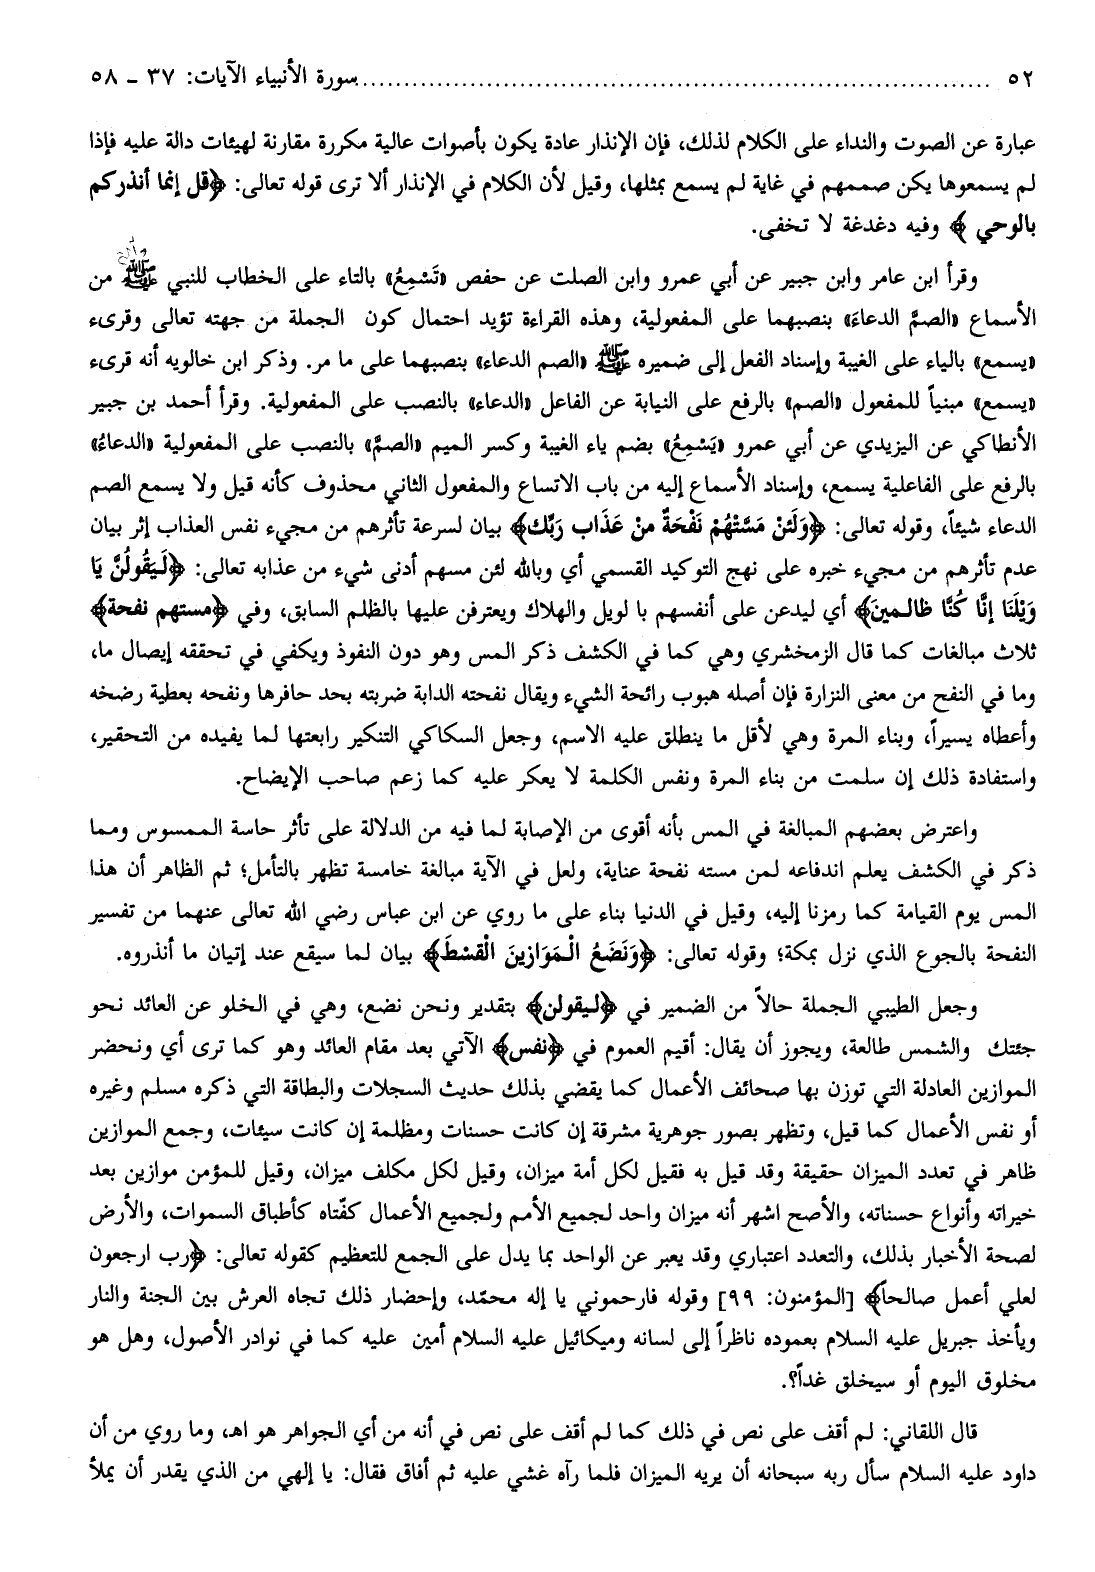 ٥٢ ................................................................................ سورة الأنبياء الآيات: ٣٧ ـ ٥٨
عبارة عن الصوت والنداء على الكلام لذلك، فإن الإنذار عادة يكون بأصوات عالية مكررة مقارنة لهيئات دالة عليه فإذا
لم يسمعوها يكن صممهم في غاية لم يسمع بمثلها، وقيل لأن الكلام في الإنذار ألا ترى قوله تعالى: ﴿قل إنما أنذركم
بالوحي ﴾ وفيه دغدغة لا تخفى.
وقرأ ابن عامر وابن جبير عن أبي عمرو وابن الصلت عن حفص «تَسْمِعُ» بالتاء على الخطاب للنبي ﷺ من
الأسماع «الصمَّ الدعاءَ» بنصبهما على المفعولية، وهذه القراءة تؤيد احتمال كون الجملة من جهته تعالى وقرىء
«يسمع» بالياء على الغيبة وإسناد الفعل إلى ضميره ﷺ «الصم الدعاء» بنصبهما على ما مر. وذكر ابن خالويه أنه قرىء
«يسمع» مبنياً للمفعول «الصم» بالرفع على النيابة عن الفاعل «الدعاء» بالنصب على المفعولية. وقرأ أحمد بن جبير
الأنطاكي عن اليزيدي عن أبي عمرو «يَسْمِعُ» بضم ياء الغيبة وكسر الميم «الصمَّ» بالنصب على المفعولية «الدعاءُ»
بالرفع على الفاعلية يسمع، وإسناد الأسماع إليه من باب الاتساع والمفعول الثاني محذوف كأنه قيل ولا يسمع الصم
الدعاء شيئاً، وقوله تعالى: ﴿وَلَئنْ مَسَّتْهُمْ نَفْحَةٌ منْ عَذَاب رَبِّك﴾ بيان لسرعة تأثرهم من مجيء نفس العذاب إثر بيان
عدم تأثرهم من مجيء خبره على نهج التوكيد القسمي أي وبالله لئن مسهم أدنى شيء من عذابه تعالى: ﴿لَيَقُولُنَّ يَا
وَيْلَنَا إنَّا كُنَّا ظالـمينَ﴾ أي ليدعن على أنفسهم با لويل والهلاك ويعترفن عليها بالظلم السابق، وفي ﴿مستهم نفحة﴾
ثلاث مبالغات كما قال الزمخشري وهي كما في الكشف ذكر المس وهو دون النفوذ ويكفي في تحققه إيصال ما،
وما في النفح من معنى النزارة فإن أصله هبوب رائحة الشيء ويقال نفحته الدابة ضربته بحد حافرها ونفحه بعطية رضخه
وأعطاه يسيراً، وبناء المرة وهي لأقل ما ينطلق عليه الاسم، وجعل السكاكي التنكير رابعتها لما يفيده من التحقير،
واستفادة ذلك إن سلمت من بناء المرة ونفس الكلمة لا يعكر عليه كما زعم صاحب الإيضاح.
واعترض بعضهم المبالغة في المس بأنه أقوى من الإصابة لما فيه من الدلالة على تأثر حاسة الممسوس ومما
ذكر في الكشف يعلم اندفاعه لمن مسته نفحة عناية، ولعل في الآية مبالغة خامسة تظهر بالتأمل؛ ثم الظاهر أن هذا
المس يوم القيامة كما رمزنا إليه، وقيل في الدنيا بناء على ما روي عن ابن عباس رضي الله تعالى عنهما من تفسير
النفحة بالجوع الذي نزل بمكة؛ وقوله تعالى: ﴿وَنَضَعُ الْـمَوَازينَ الْقسْطَ﴾ بيان لما سيقع عند إتيان ما أنذروه.
وجعل الطيبي الجملة حالاً من الضمير في ﴿ليقولن﴾ بتقدير ونحن نضع، وهي في الخلو عن العائد نحو
جئتك والشمس طالعة، ويجوز أن يقال: أقيم العموم في ﴿نفس﴾ الآتي بعد مقام العائد وهو كما ترى أي ونحضر
الموازين العادلة التي توزن بها صحائف الأعمال كما يقضي بذلك حديث السجلات والبطاقة التي ذكره مسلم وغيره
أو نفس الأعمال كما قيل، وتظهر بصور جوهرية مشرقة إن كانت حسنات ومظلمة إن كانت سيئات، وجمع الموازين
ظاهر في تعدد الميزان حقيقة وقد قيل به فقيل لكل أمة ميزان، وقيل لكل مكلف ميزان، وقيل للمؤمن موازين بعد
خيراته وأنواع حسناته، والأصح اشهر أنه ميزان واحد لجميع الأمم ولجميع الأعمال كفّتاه كأطباق السموات، والأرض
لصحة الأخبار بذلك، والتعدد اعتباري وقد يعبر عن الواحد بما يدل على الجمع للتعظيم كقوله تعالى: ﴿رب ارجعون
لعلي أعمل صالحاً﴾ [المؤمنون: ٩٩] وقوله فارحموني يا إله محمّد، وإحضار ذلك تجاه العرش بين الجنة والنار
ويأخذ جبريل عليه السلام بعموده ناظراً إلى لسانه وميكائيل عليه السلام أمين عليه كما في نوادر الأصول، وهل هو
مخلوق اليوم أو سيخلق غداً؟.
قال اللقاني: لم أقف على نص في ذلك كما لم أقف على نص في أنه من أي الجواهر هو اهـ، وما روي من أن
داود عليه السلام سأل ربه سبحانه أن يريه الميزان فلما رآه غشي عليه ثم أفاق فقال: يا إلهي من الذي يقدر أن يملأ